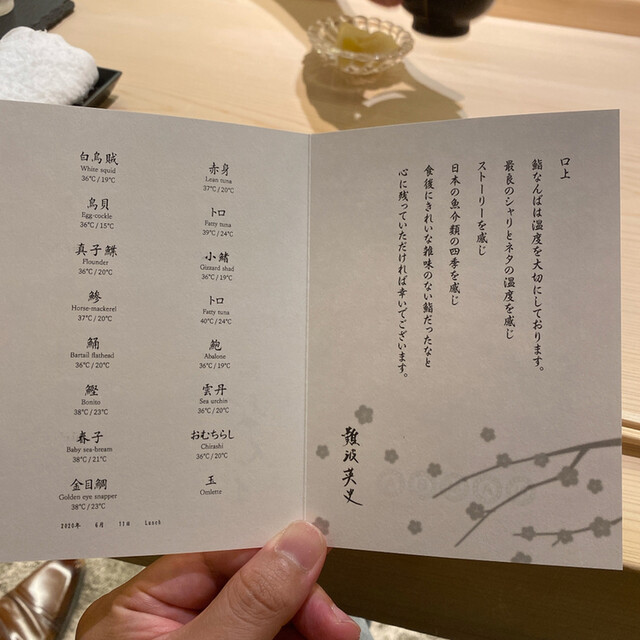 白烏賊
White squid
36℃ / 19℃
鳥貝
Egg-cockle
36℃ / 15℃
真子鰈
Flounder
36℃ / 20℃
鯵
Horse-mackerel
37℃ / 20℃
鯒
Bartail flathead
36℃ / 20℃
鰹
Bonito
38℃ / 23℃
春子
Baby sea-bream
38℃ / 21℃
金目鯛
Golden eye snapper
38℃ / 23℃
2020年 6月 11日 Lunch
赤身
Lean tuna
37℃ / 20℃
トロ
Fatty tuna
39℃ / 24℃
小鰭
Gizzard shad
36℃ / 19℃
トロ
Fatty tuna
40℃ / 24℃
鮑
Abalone
36℃ / 19℃
雲丹
Sea urchin
36℃ / 20℃
おむちらし
Chirashi
36℃ / 20℃
玉
Omlette
口上
鮨なんばは温度を大切にしております。
最良のシャリとネタの温度を感じ
ストーリーを感じ
日本の魚介類の四季を感じ
食後にきれいな雑味のない鮨だったなと
心に残っていただければ幸いでございます。
難波英史